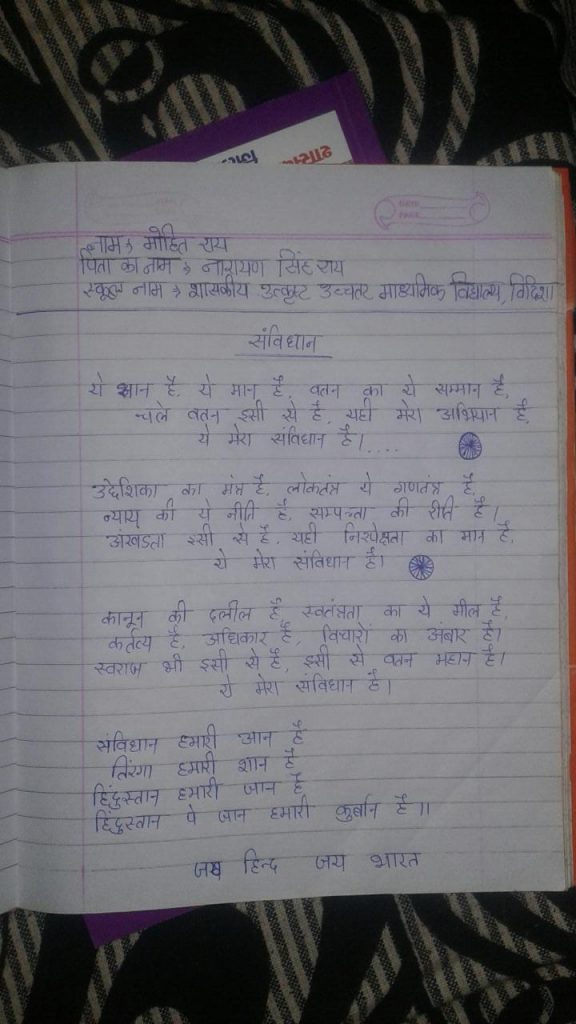 शासव
DATE
PAGE
नाम → मोहित राय
पिता का नाम → नारायण सिंह राय
स्कूल नाम → शासकीय उत्कृष्ट उच्चतर माध्यमिक विद्यालय, विदिशा
संविधान
ये आन है, ये मान है, वतन का ये सम्मान है,
चले वतन इसी से है, यही मेरा अभियान है,
ये मेरा संविधान है।....
उद्देशिका का मंत्र है, लोकतंत्र ये गणतंत्र है,
न्याय की ये नीति है, सम्पन्नता की रीति है।
अंखडता इसी से है, यही निरपेक्षता का मान है,
ये मेरा संविधान है।
कानून की दलील है, स्वतंत्रता का ये मील है,
कर्तव्य है, अधिकार है, विचारों का अंबार है।
स्वराज भी इसी से है, इसी से वतन महान है।
ये मेरा संविधान है।
संविधान हमारी आन है
तिरंगा हमारी शान है
हिंदुस्तान हमारी जान है
हिंदुस्तान पे जान हमारी कुर्बान है॥
जय हिन्द जय भारत